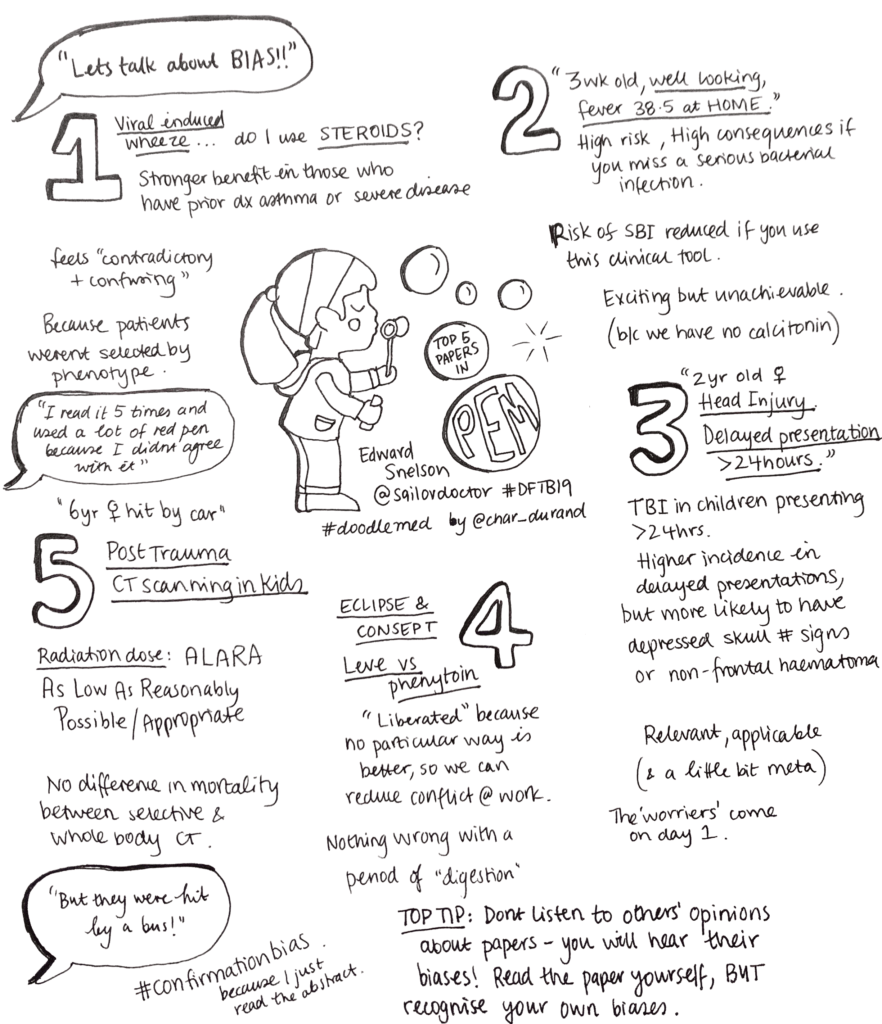 "Lets talk about BIAS!!"
1
Viral induced
wheeze... do I use STEROIDS?
Stronger benefit in those who
have prior dx asthma or severe disease
feels "contradictory
+ confusing"
Because patients
werent selected by
phenotype.
"I read it 5 times and
used a lot of red pen
because I didnt agree
with it"
2
"3wk old, well looking,
fever 38.5 at HOME."
High risk, High consequences if
you miss a serious bacterial
infection.
Risk of SBI reduced if you use
this clinical tool.
Exciting but unachievable.
(b/c we have no calcitonin)
TOP 5
PAPERS
IN
PEM
Edward
Snelson
@sailordoctor #DFTB19
#doodlemed by @char_durand
3
"2yr old ♀
Head Injury.
Delayed presentation
>24hours."
TBI in children presenting
>24hrs.
Higher incidence in
delayed presentations,
but more likely to have
depressed skull # signs
or non-frontal haematoma
Relevant, applicable
(& a little bit meta)
The 'worriers' come
on day 1.
4
ECLIPSE &
CONSEPT
Leve vs
phenytoin
"Liberated" because
no particular way is
better, so we can
reduce conflict @ work.
Nothing wrong with a
period of "digestion"
5
"6yr ♀ hit by car"
Post Trauma
CT scanning in Kids
Radiation dose: ALARA
As Low As Reasonably
Possible/Appropriate
No difference in mortality
between selective &
whole body CT.
"But they were hit
by a bus!"
#confirmationbias.
because I just
read the abstract.
TOP TIP: Dont listen to others' opinions
about papers - you will hear their
biases! Read the paper yourself, BUT
recognise your own biases.